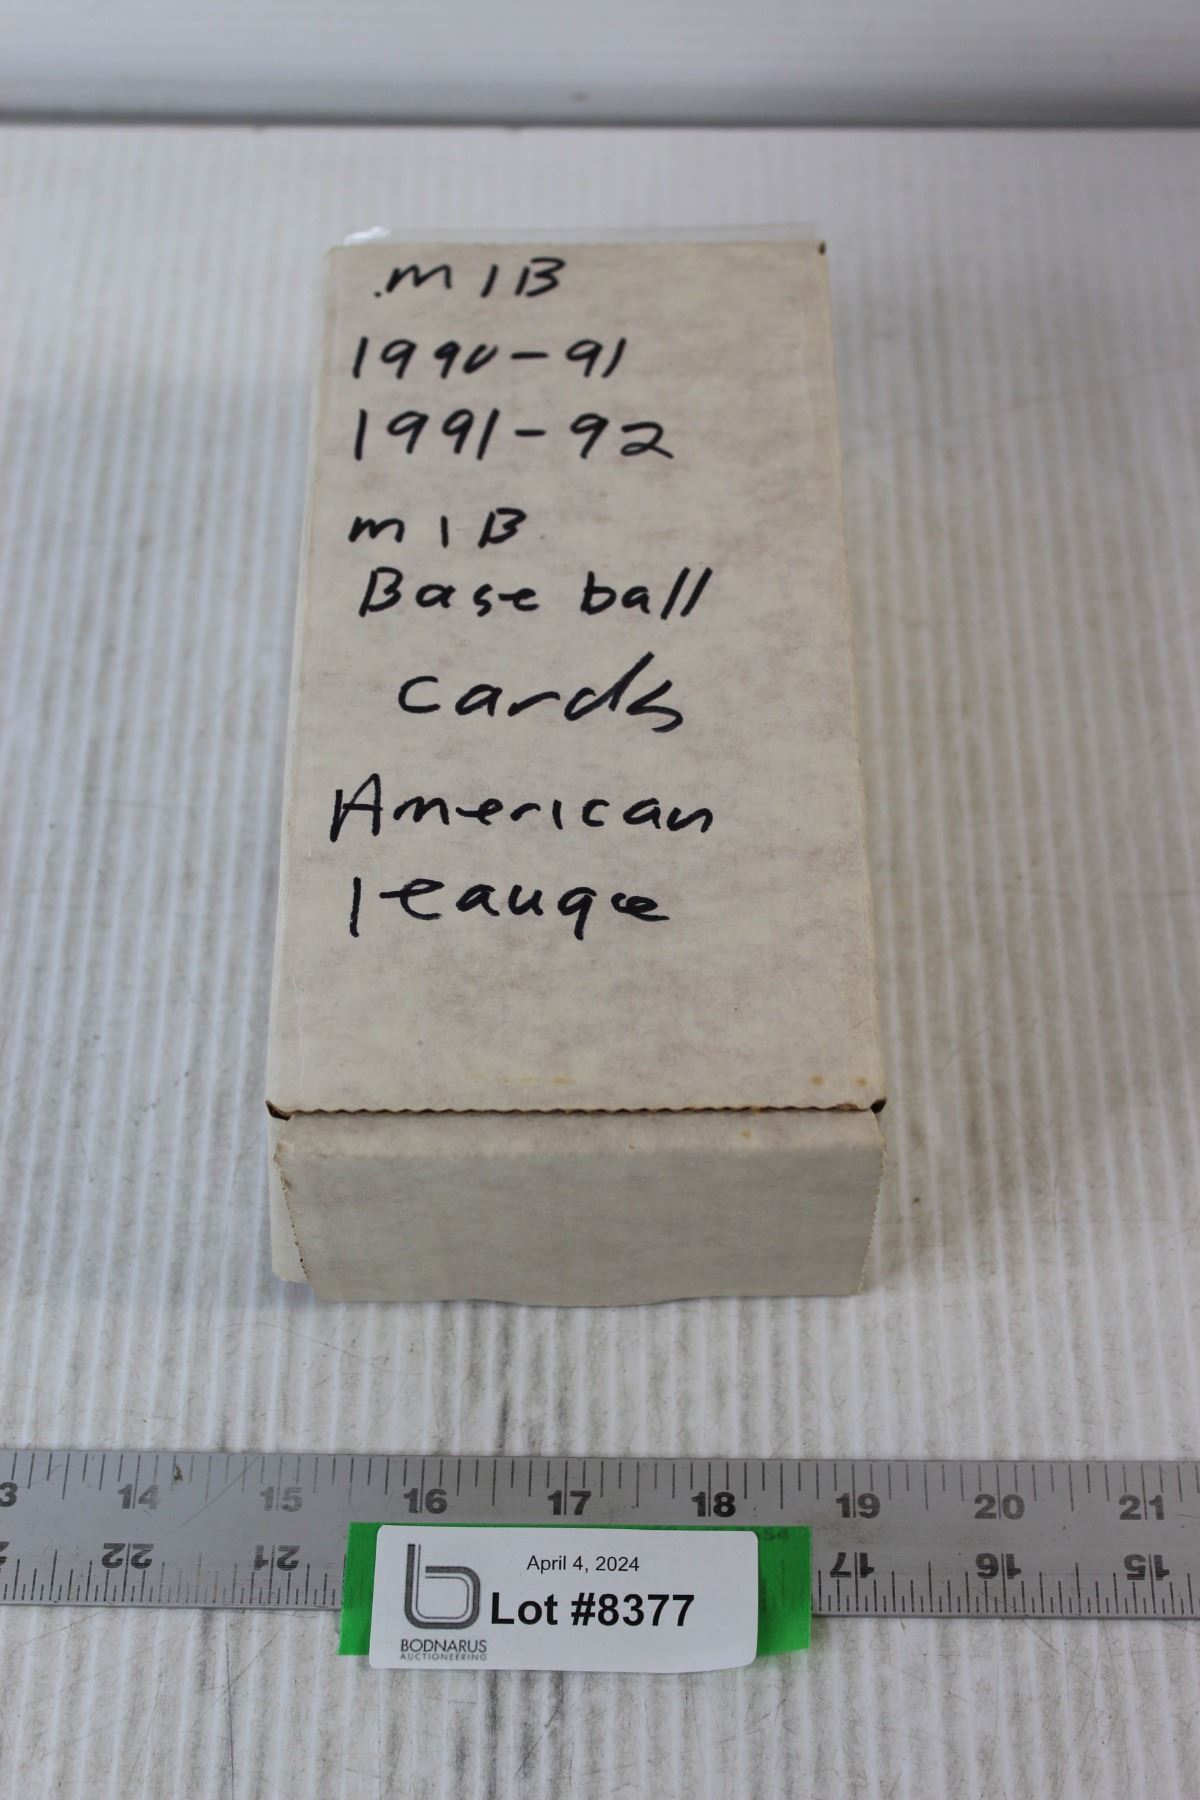 .m l B
1990-91
1991-92
m l B
Base ball
cards
American
leauge
13 14 15 16 17 18 19 20 21
22 21 17 16 15
April 4, 2024
b Lot #8377
BODNARUS
AUCTIONEERING